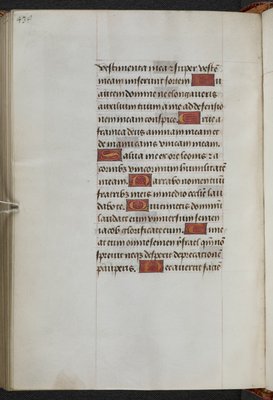 vestimenta mea ⁊ super vestē
meam miserunt sortem Tu
autem domine ne elongaueris
auxilium tuum a me ad defensio
nem meam conspice. Erue a
framea deus animam meam et
de manu canis vnicam meam.
Salua me ex ore leonis: ⁊ a
cornibꝰ vnicornium humilitatē
meam. Narrabo nomen tuū
fratribꝰ meis in medio ecclesie lau
dabo te. Qui timetis dominū
laudate eum vniuersum semen
iacob glorificate eum. Time
at eum omne semen ysrael qm̄ nō
spreuit neqꝫ despexit deprecationē
pauperis. Nec auertit faciē